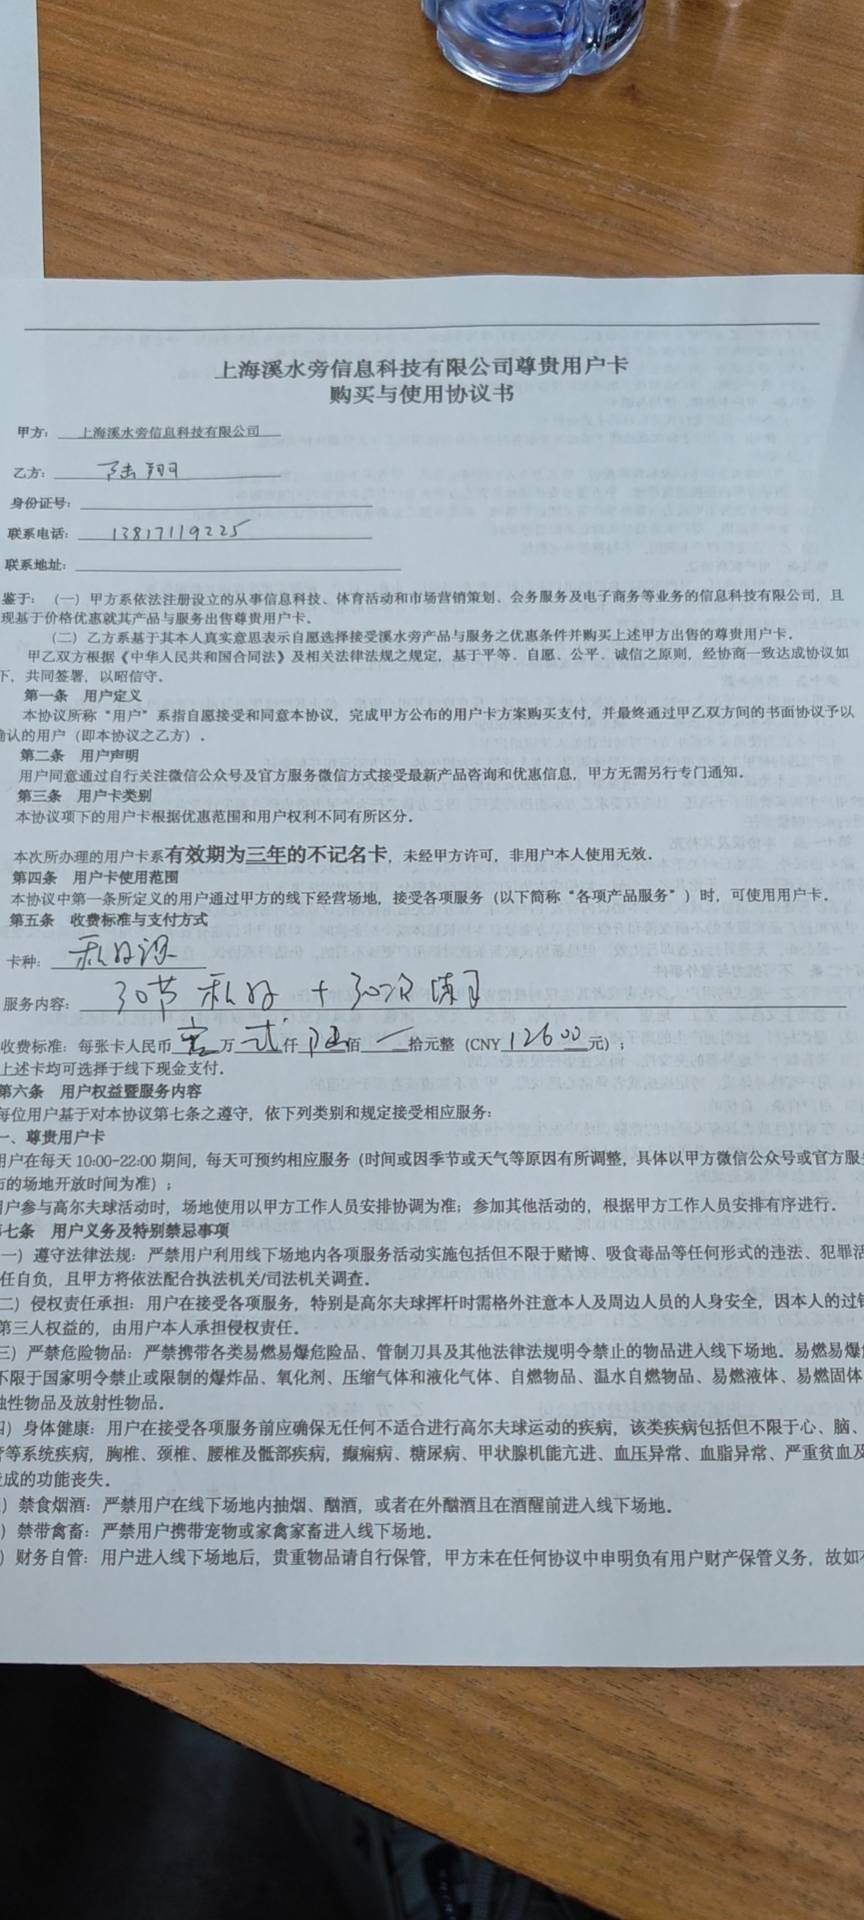 上海溪水旁信息科技有限公司尊贵用户卡
购买与使用协议书
甲方：上海溪水旁信息科技有限公司
乙方：陆翔
身份证号：
联系电话：13817119225
联系地址：
鉴于：（一）甲方系依法注册设立的从事信息科技、体育活动和市场营销策划、会务服务及电子商务等业务的信息科技有限公司，且
现基于价格优惠就其产品与服务出售尊贵用户卡．
（二）乙方系基于其本人真实意思表示自愿选择接受溪水旁产品与服务之优惠条件并购买上述甲方出售的尊贵用户卡．
甲乙双方根据《中华人民共和国合同法》及相关法律法规之规定，基于平等、自愿、公平、诚信之原则，经协商一致达成协议如
下，共同签署，以昭信守．
第一条 用户定义
本协议所称“用户”系指自愿接受和同意本协议，完成甲方公布的用户卡方案购买支付，并最终通过甲乙双方间的书面协议予以
确认的用户（即本协议之乙方）．
第二条 用户声明
用户同意通过自行关注微信公众号及官方服务微信方式接受最新产品咨询和优惠信息，甲方无需另行专门通知．
第三条 用户卡类别
本协议项下的用户卡根据优惠范围和用户权利不同有所区分．
本次所办理的用户卡系有效期为三年的不记名卡，未经甲方许可，非用户本人使用无效．
第四条 用户卡使用范围
本协议中第一条所定义的用户通过甲方的线下经营场地，接受各项服务（以下简称“各项产品服务”）时，可使用用户卡．
第五条 收费标准与支付方式
卡种：私教课
服务内容：30节 私教 + 30次 练习
收费标准：每张卡人民币壹万弍仟陆佰一拾元整（CNY 12600元）；
上述卡均可选择于线下现金支付．
第六条 用户权益暨服务内容
每位用户基于对本协议第七条之遵守，依下列类别和规定接受相应服务：
一、尊贵用户卡
用户在每天 10:00-22:00 期间，每天可预约相应服务（时间或因季节或天气等原因有所调整，具体以甲方微信公众号或官方服务
布的场地开放时间为准）；
用户参与高尔夫球活动时，场地使用以甲方工作人员安排协调为准；参加其他活动的，根据甲方工作人员安排有序进行．
第七条 用户义务及特别禁忌事项
一）遵守法律法规：严禁用户利用线下场地内各项服务活动实施包括但不限于赌博、吸食毒品等任何形式的违法、犯罪活
任自负，且甲方将依法配合执法机关/司法机关调查．
二）侵权责任承担：用户在接受各项服务，特别是高尔夫球挥杆时需格外注意本人及周边人员的人身安全，因本人的过错
第三人权益的，由用户本人承担侵权责任．
三）严禁危险物品：严禁携带各类易燃易爆危险品、管制刀具及其他法律法规明令禁止的物品进入线下场地．易燃易爆
不限于国家明令禁止或限制的爆炸品、氧化剂、压缩气体和液化气体、自燃物品、温水自燃物品、易燃液体、易燃固体
蚀性物品及放射性物品．
四）身体健康：用户在接受各项服务前应确保无任何不适合进行高尔夫球运动的疾病，该类疾病包括但不限于心、脑、
等系统疾病，胸椎、颈椎、腰椎及骶部疾病，癫痫病、糖尿病、甲状腺机能亢进、血压异常、血脂异常、严重贫血及
造成的功能丧失．
）禁食烟酒：严禁用户在线下场地内抽烟、酗酒，或者在外酗酒且在酒醒前进入线下场地．
）禁带禽畜：严禁用户携带宠物或家禽家畜进入线下场地．
）财务自管：用户进入线下场地后，贵重物品请自行保管，甲方未在任何协议中申明负有用户财产保管义务，故如